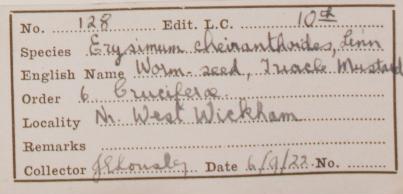 No. 128 Edit. L.C. 10th
Species Erysimum cheiranthoides, Linn
English Name Worm-seed, Treacle Mustard
Order 6 Cruciferæ
Locality Nr. West Wickham
Remarks
Collector J.E. Lousley Date 6/9/22 No.